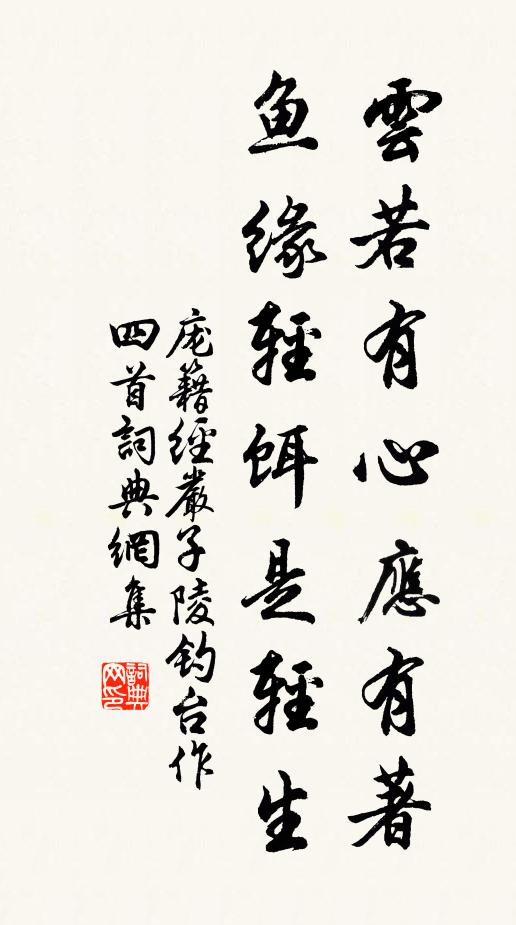 雲若有心應有著
鱼緣輕餌是輕生
庬籍經嚴子陵钓台作
四首詞典網集
詞典网印